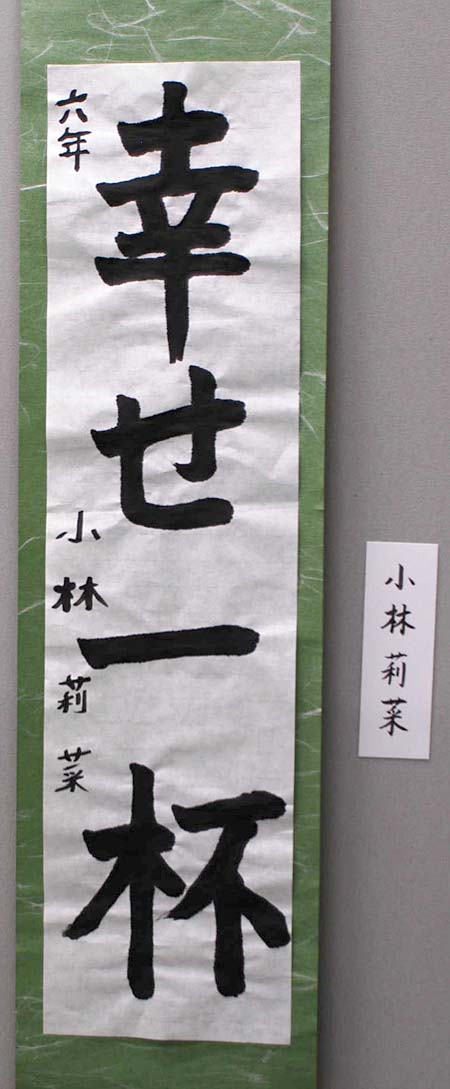 幸せ一杯
六年
小林莉菜
小林莉菜